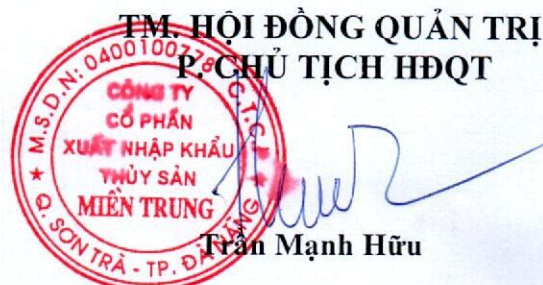 TM. HỘI ĐỒNG QUẢN TRỊ
P. CHỦ TỊCH HĐQT
M.S.D.N: 0400100778 - C.T.C.P
CÔNG TY
CỔ PHẦN
XUẤT NHẬP KHẨU
THỦY SẢN
MIỀN TRUNG
Q. SƠN TRÀ - TP. ĐÀ NẴNG
Trần Mạnh Hữu